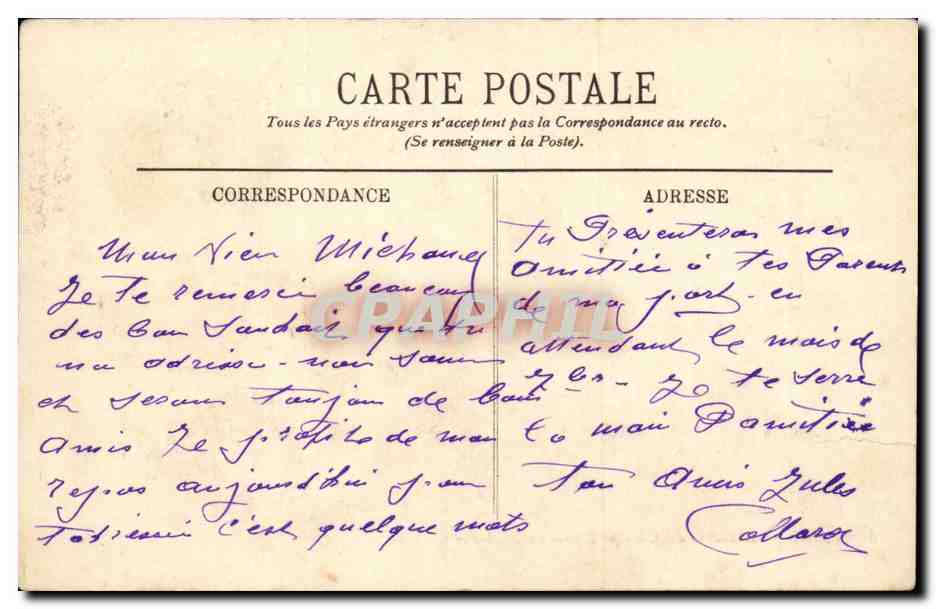 CARTE POSTALE
Tous les Pays étrangers n'acceptent pas la Correspondance au recto.
(Se renseigner à la Poste).
CORRESPONDANCE
Mon Vieu Michaud
Je te remersie beaucoup
des bon Souhait que tu
ma adrisse - nou Somme
et serons toujou de bons
Amis Je profite de mon
repos aujourd'hui pour
t'adressé c'est quelque mots
ADRESSE
tu Présenteras mes
amitiée à tes Parents
de ma part - en
attendant le mois de
7bre - Je te serre
la main D'amitiée
ton Amis Jules
Collard
CPAPHIL